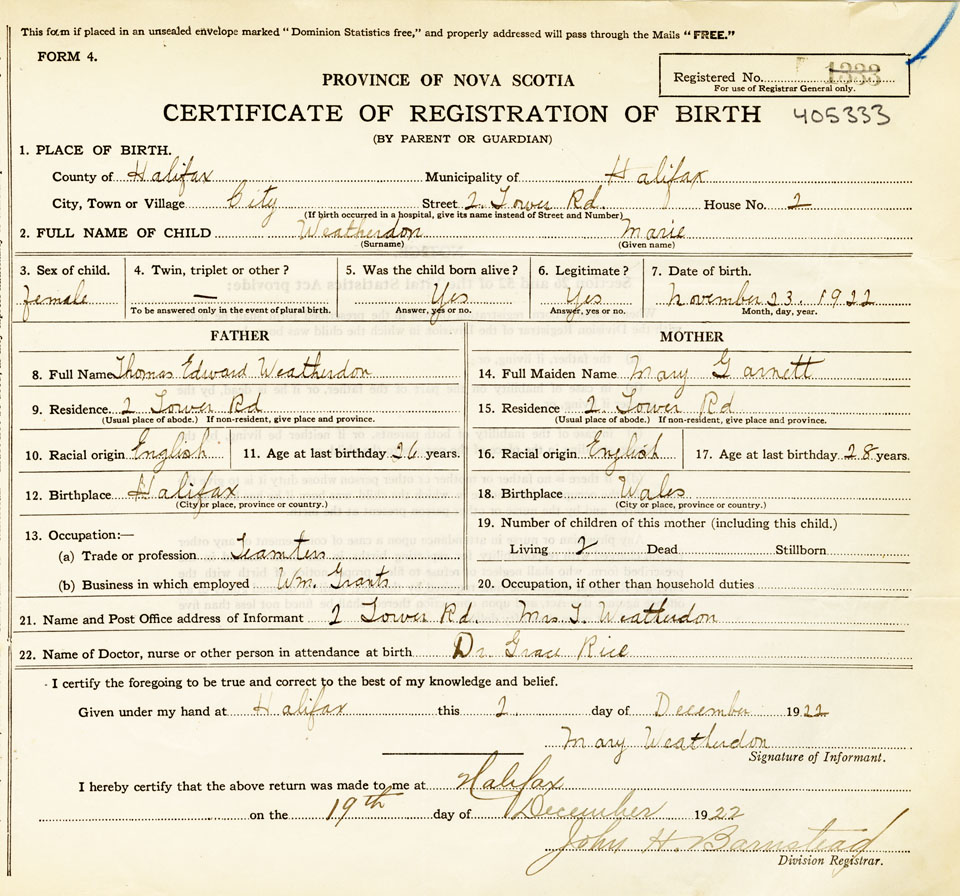 This form if placed in an unsealed envelope marked "Dominion Statistics free," and properly addressed will pass through the Mails "FREE."
FORM 4.
PROVINCE OF NOVA SCOTIA
Registered No. 1333
For use of Registrar General only.
CERTIFICATE OF REGISTRATION OF BIRTH 405333
(BY PARENT OR GUARDIAN)
1. PLACE OF BIRTH.
County of Halifax Municipality of Halifax
City, Town or Village City Street 2 Tower Rd. House No. 2
(If birth occurred in a hospital, give its name instead of Street and Number)
2. FULL NAME OF CHILD Weatherdon Marie
(Surname) (Given name)
3. Sex of child. 4. Twin, triplet or other? 5. Was the child born alive? 6. Legitimate? 7. Date of birth.
female — Yes Yes November 23. 1922
To be answered only in the event of plural birth. Answer, yes or no. Answer, yes or no. Month, day, year.
FATHER MOTHER
8. Full Name Thomas Edward Weatherdon 14. Full Maiden Name Mary Garnett
9. Residence. 2 Tower Rd 15. Residence 2 Tower Rd
(Usual place of abode.) If non-resident, give place and province. (Usual place of abode.) If non-resident, give place and province.
10. Racial origin English 11. Age at last birthday 26 years. 16. Racial origin English 17. Age at last birthday 28 years.
12. Birthplace Halifax 18. Birthplace Wales
(City or place, province or country.) (City or place, province or country.)
13. Occupation:— 19. Number of children of this mother (including this child.)
(a) Trade or profession Teamster Living 2 Dead Stillborn
(b) Business in which employed Wm. Grants 20. Occupation, if other than household duties
21. Name and Post Office address of Informant 2 Tower Rd. Mrs T. Weatherdon
22. Name of Doctor, nurse or other person in attendance at birth Dr Grace Rice
I certify the foregoing to be true and correct to the best of my knowledge and belief.
Given under my hand at Halifax this 2 day of December 1922
Mary Weatherdon
Signature of Informant.
I hereby certify that the above return was made to me at Halifax
on the 19th day of December 1922
John H. Barnstead
Division Registrar.